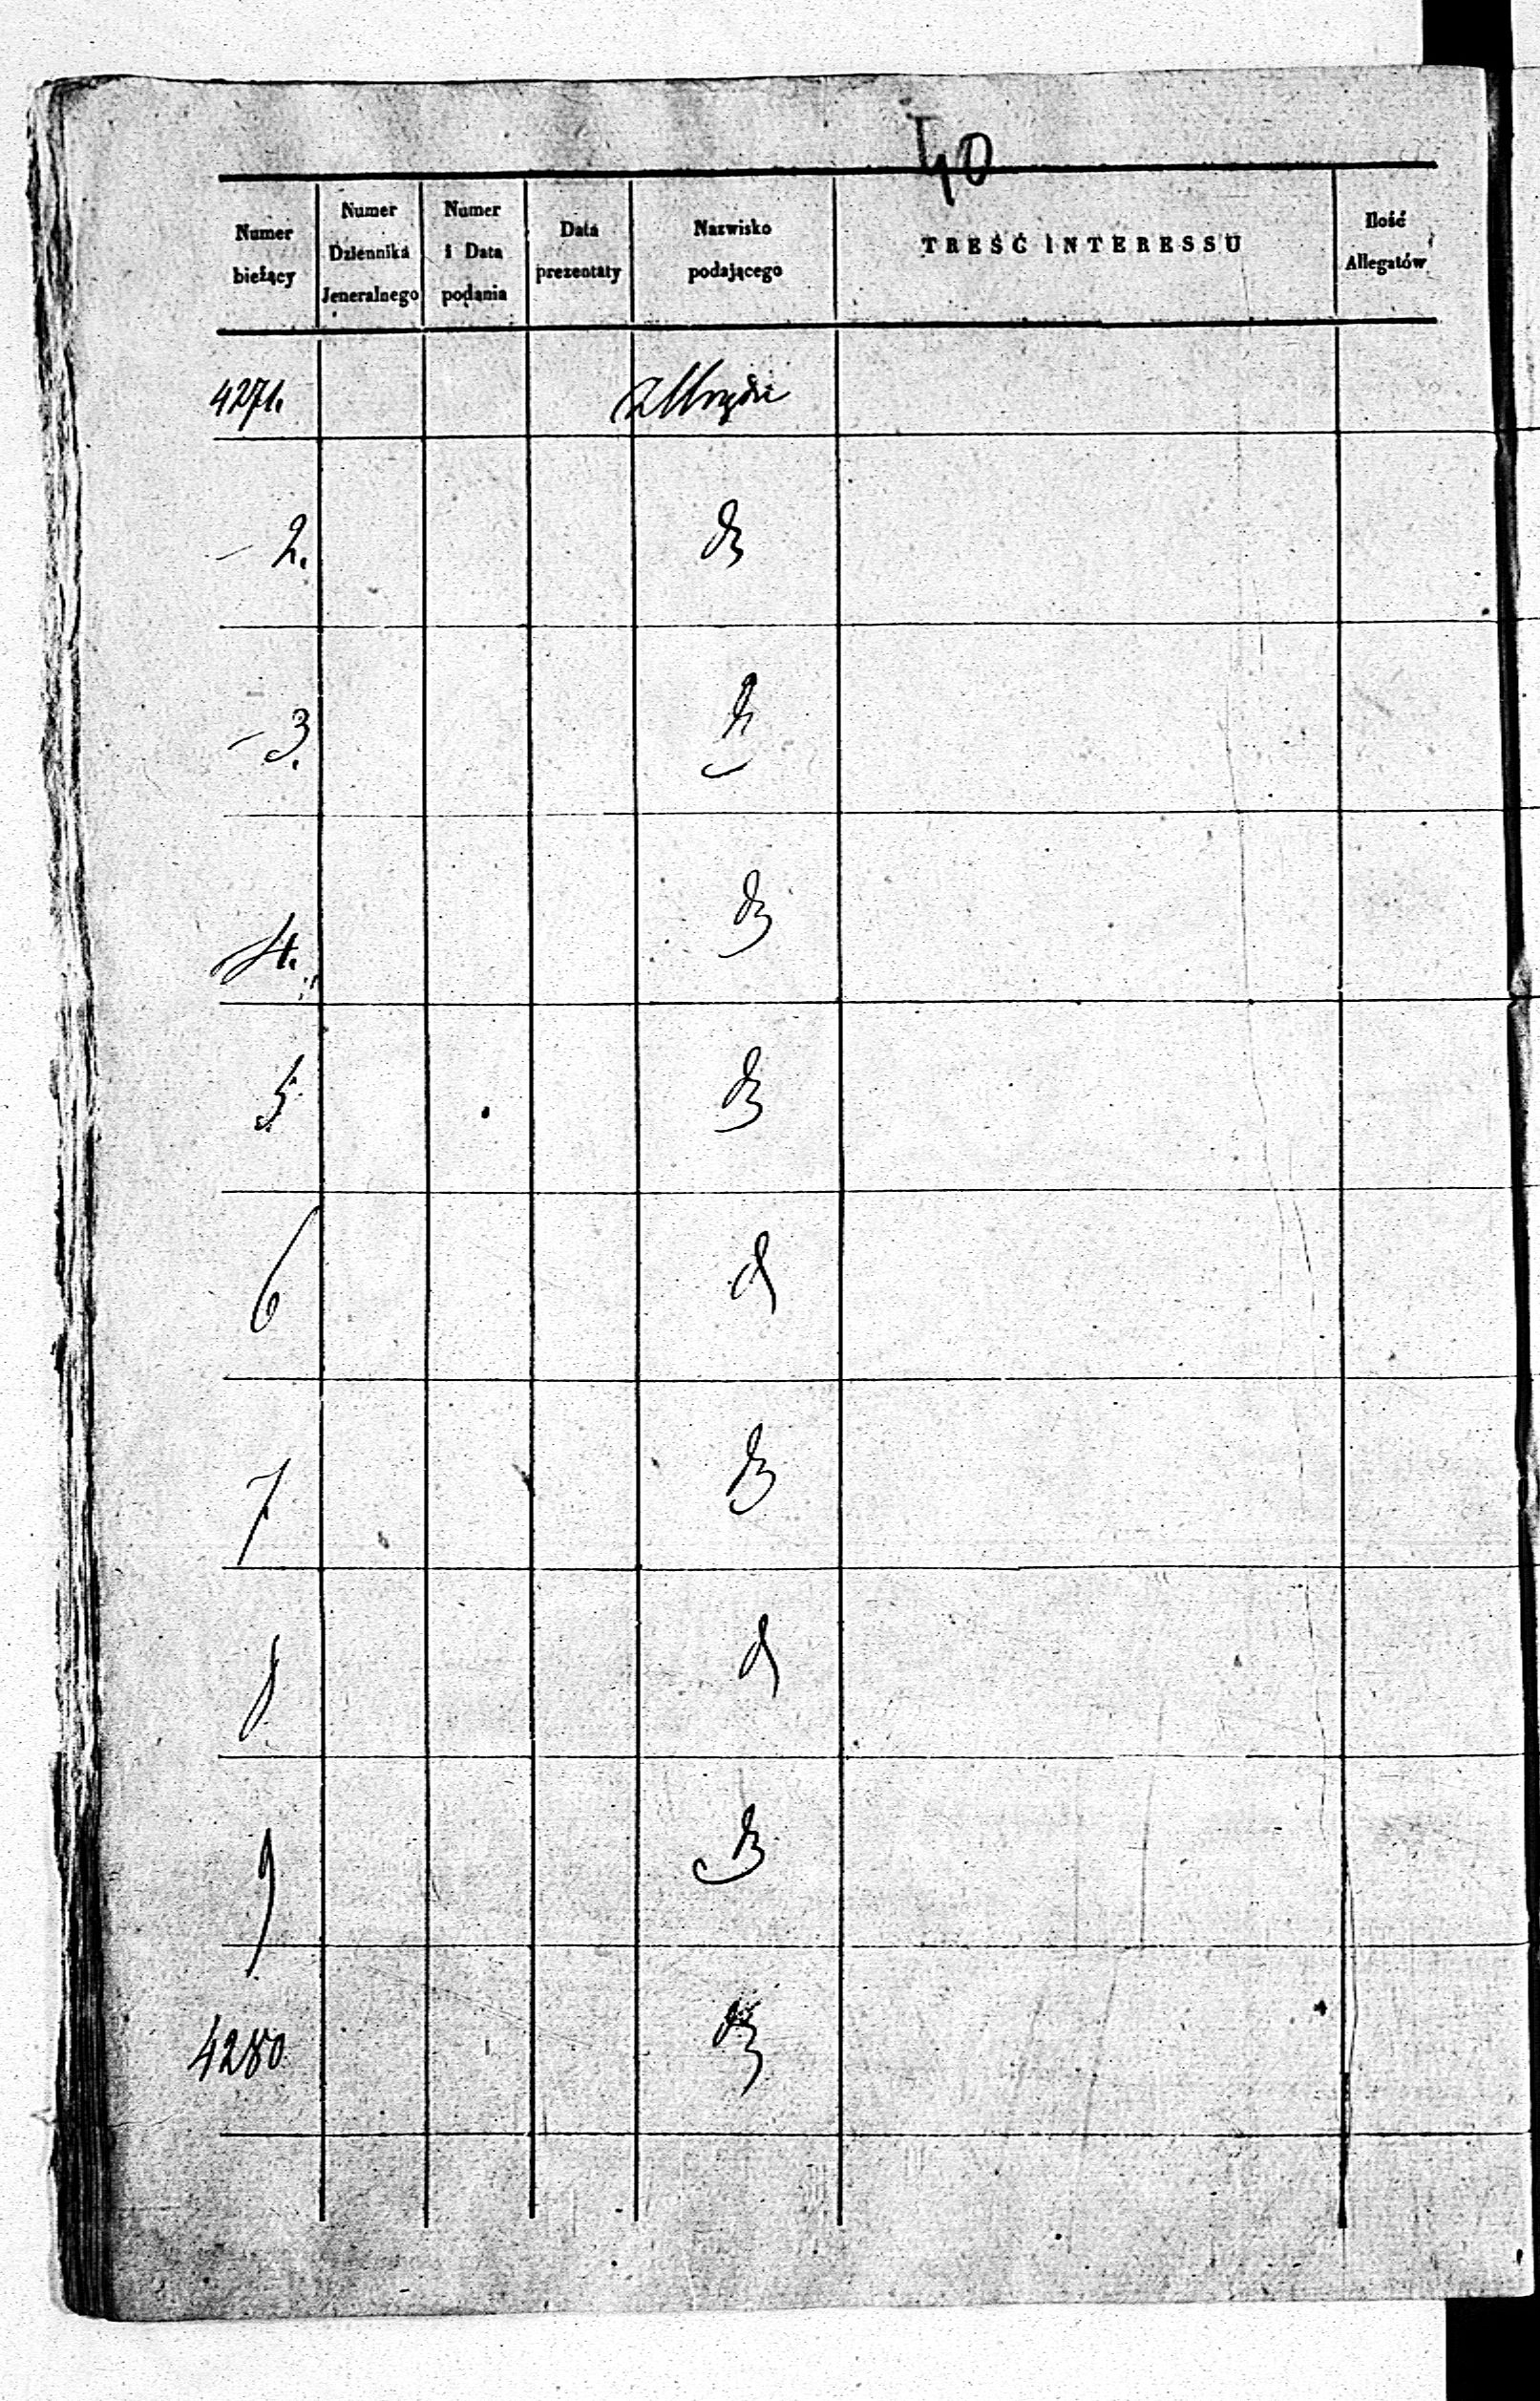 40
Numer bieżący | Numer Dziennika Jeneralnego | Numer i Data podania | Data prezentaty | Nazwisko podającego | TREŚĆ INTERESSU | Ilość Allegatów
4271. z Urzędu
- 2.
- 3.
- 4.
5
6
7
8
9
4280